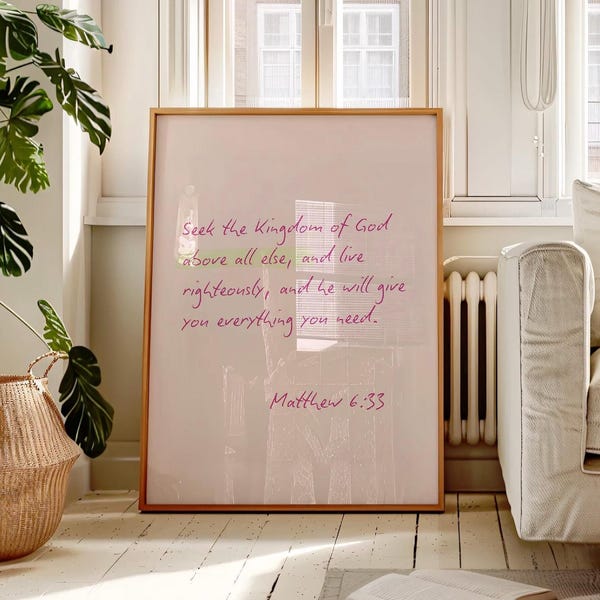 Seek the Kingdom of God
above all else, and live
righteously, and he will give
you everything you need.
Matthew 6:33